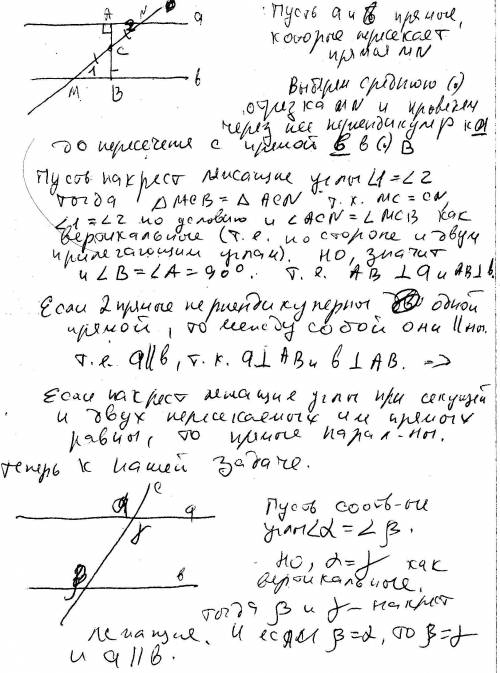 Пусть a и b прямые,
которые пересекает
прямая MN
A N a
2
C
1
M B b
Выберем средней (.)
отрезка MN и проведем
через нее перпендикуляр к a
до пересечения с прямой b в (.) B
Пусть накрест лежащие углы ∠1=∠2
тогда △MCB = △ACN т.к. MC = CN,
∠1=∠2 по условию и ∠ACN=∠MCB как
вертикальные (т.е. по стороне и двум
прилегающим углам). Но, значит
и ∠B=∠A=90°. т.е. AB ⊥ a и AB ⊥ b.
Если 2 прямые перпендикулярны одной
прямой, то между собой они ||ны.
т.е. a||b, т.к. a⊥AB и b⊥AB. =>
Если накрест лежащие углы при секущей
и двух пересекаемых им прямых
равны, то прямые парал-ны.
теперь к нашей задаче.
c
α a
γ
β b
Пусть соотв-ые
углы ∠α = ∠β.
Но, α=γ как
вертикальные,
тогда β и γ - накрест
лежащие. И если β=α, то β=γ
и a||b.